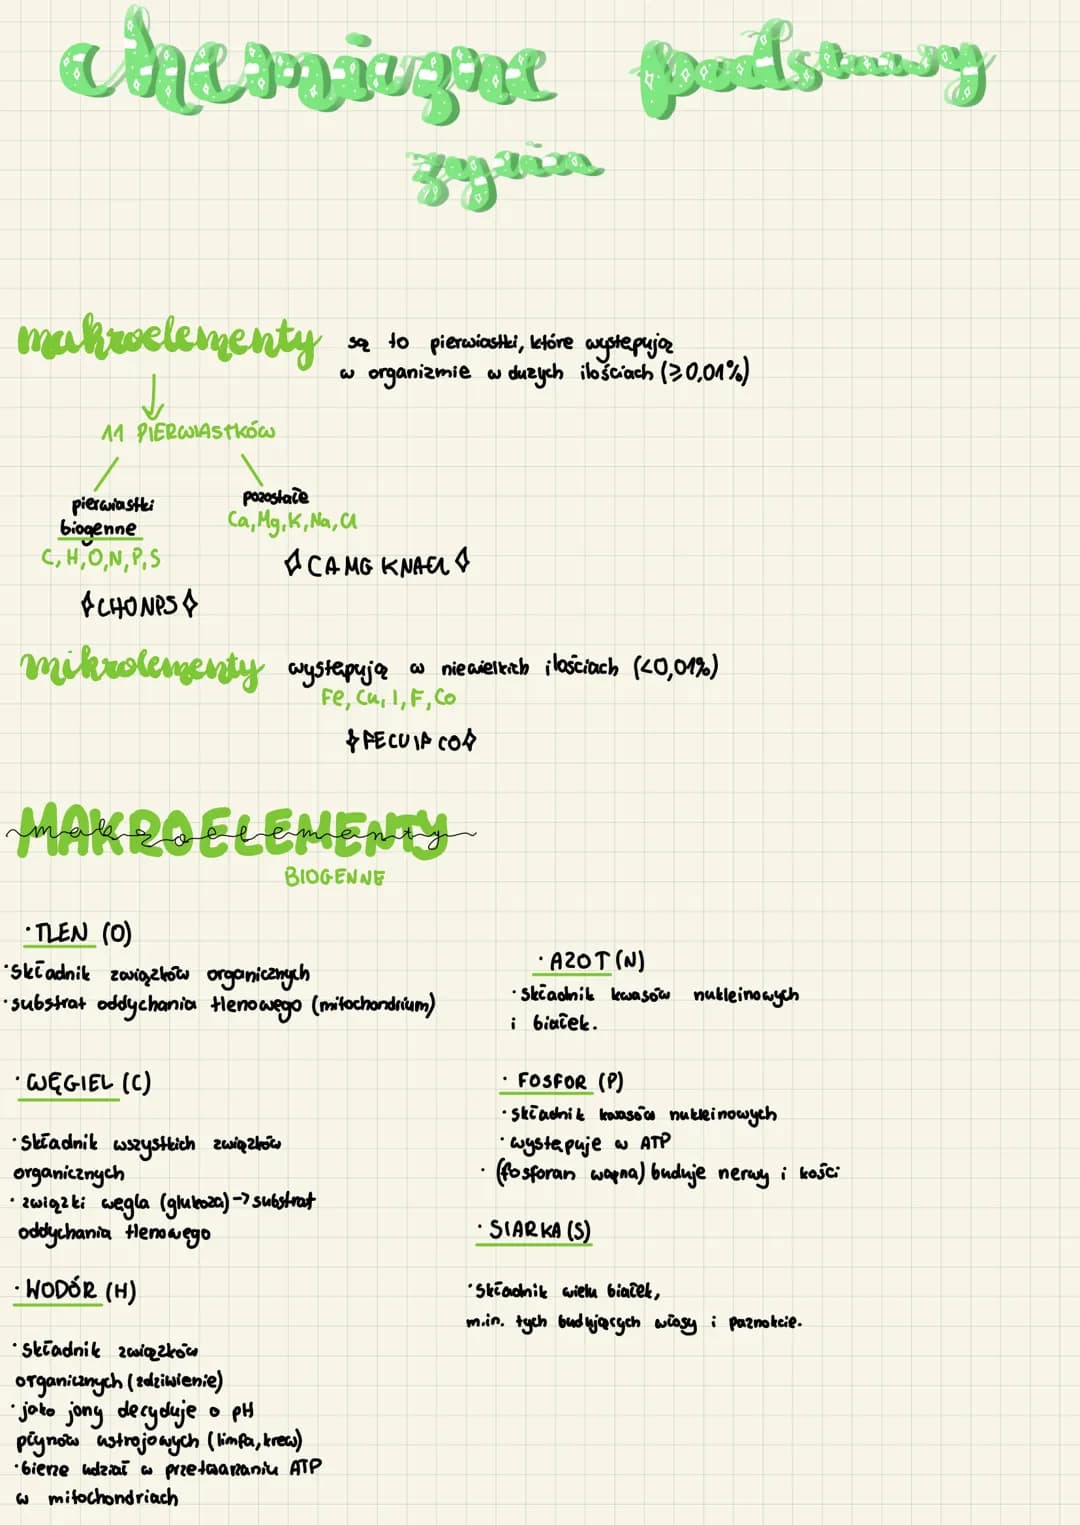 chemiczne podstawy
życia
makroelementy są to pierwiastki, które występują
w organizmie w dużych ilościach (≥0,01%)
11 PIERWIASTKÓW
pierwiastki
biogenne
C, H, O, N, P, S
◊ CHONPS ◊
pozostałe
Ca, Mg, K, Na, Cl
◊ CAMG KNACL ◊
mikrolementy występują w niewielkich ilościach (<0,01%)
Fe, Cu, I, F, Co
◊ FECUIF CO ◊
MAKROELEMENTY
makroelementy
BIOGENNE
· TLEN (O)
· Składnik związków organicznych
· substrat oddychania tlenowego (mitochondrium)
· WĘGIEL (C)
· Składnik wszystkich związków
organicznych
· związki węgla (glukoza) -> substrat
oddychania tlenowego
· WODÓR (H)
· Składnik związków
organicznych (zdziwienie)
· jako jony decyduje o pH
płynów ustrojowych (limfa, krew)
· bierze udział w przetwarzaniu ATP
w mitochondriach
· AZOT (N)
· Składnik kwasów nukleinowych
i białek.
· FOSFOR (P)
· Składnik kwasów nukleinowych
· występuje w ATP
· (fosforan wapna) buduje nerwy i kości
· SIARKA (S)
· Składnik wielu białek,
m.in. tych budujących włosy i paznokcie.